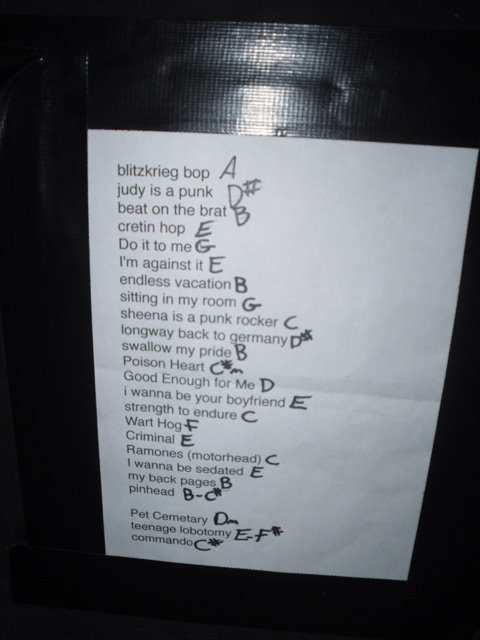 blitzkrieg bop A
judy is a punk D#
beat on the brat B
cretin hop E
Do it to me G
I'm against it E
endless vacation B
sitting in my room G
sheena is a punk rocker C
longway back to germany D#
swallow my pride B
Poison Heart C#m
Good Enough for Me D
i wanna be your boyfriend E
strength to endure C
Wart Hog F
Criminal E
Ramones (motorhead) C
I wanna be sedated E
my back pages B
pinhead B-C#
Pet Cemetary Dm
teenage lobotomy E-F#
commando C#